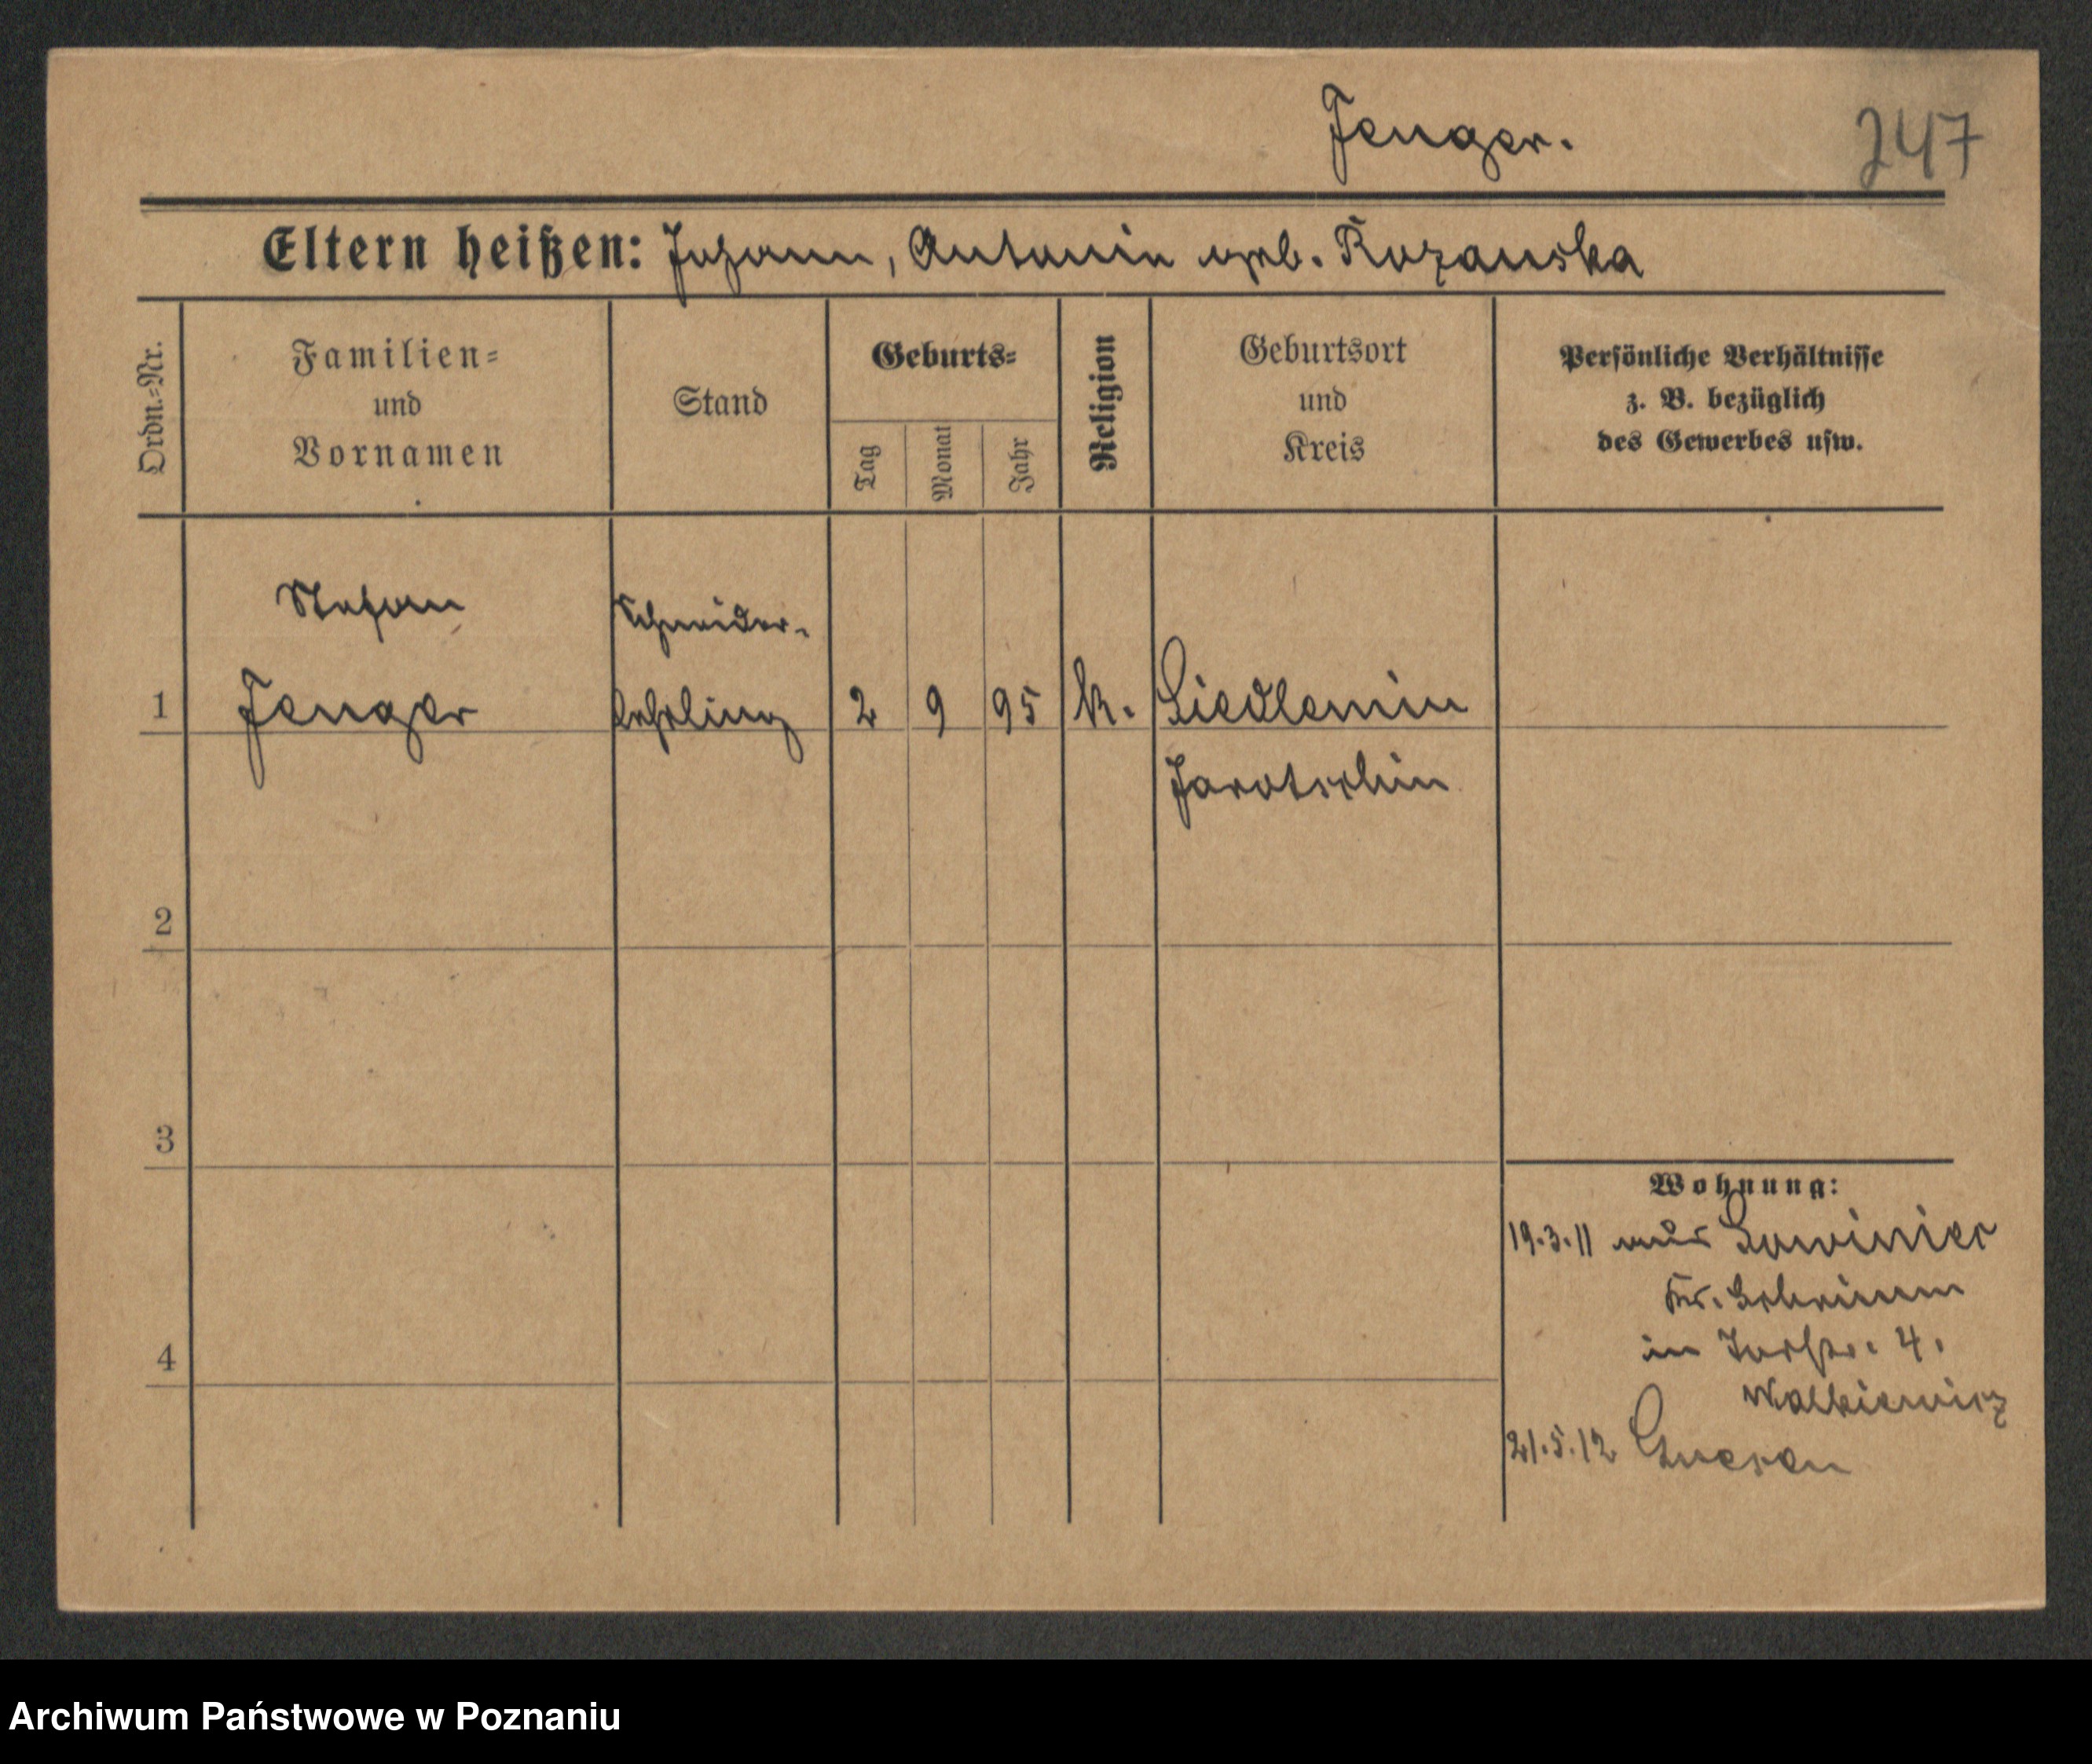 Jenger.
247
Eltern heißen: Johann, Antonie geb. Rozanska
Ordn.=Nr.
Familien=
und
Vornamen
Stand
Geburts=
Tag
Monat
Jahr
Religion
Geburtsort
und
Kreis
Persönliche Verhältnisse
z. B. bezüglich
des Gewerbes usw.
Stefan
Schneider-
1 Jenger lehrling 2 9 95 k. Siedlemin
Jarotschin
2
3
Wohnung:
19.3.11 aus Lowiniec
Kr. Schrimm
in 4.
4
Walkiewicz
21.5.12 Gnesen
Archiwum Państwowe w Poznaniu